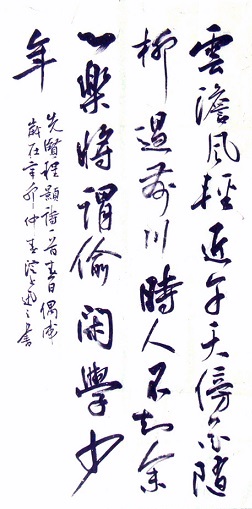 雲澹風輕近午天傍花隨
柳過前川時人不知余
心樂將謂偷閑學少
年
先賢程顥詩一首春日偶成
歲在辛卯仲春書